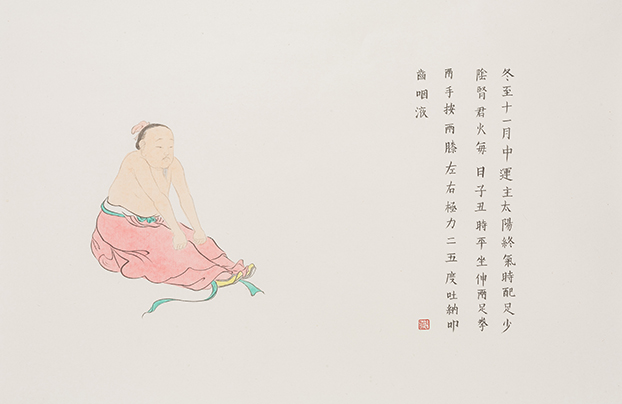 冬至十一月中運主太陽終氣時配足少
陰腎君火每日子丑時平坐伸兩足拳
兩手按兩膝左右極力二五度吐納叩
齒咽液